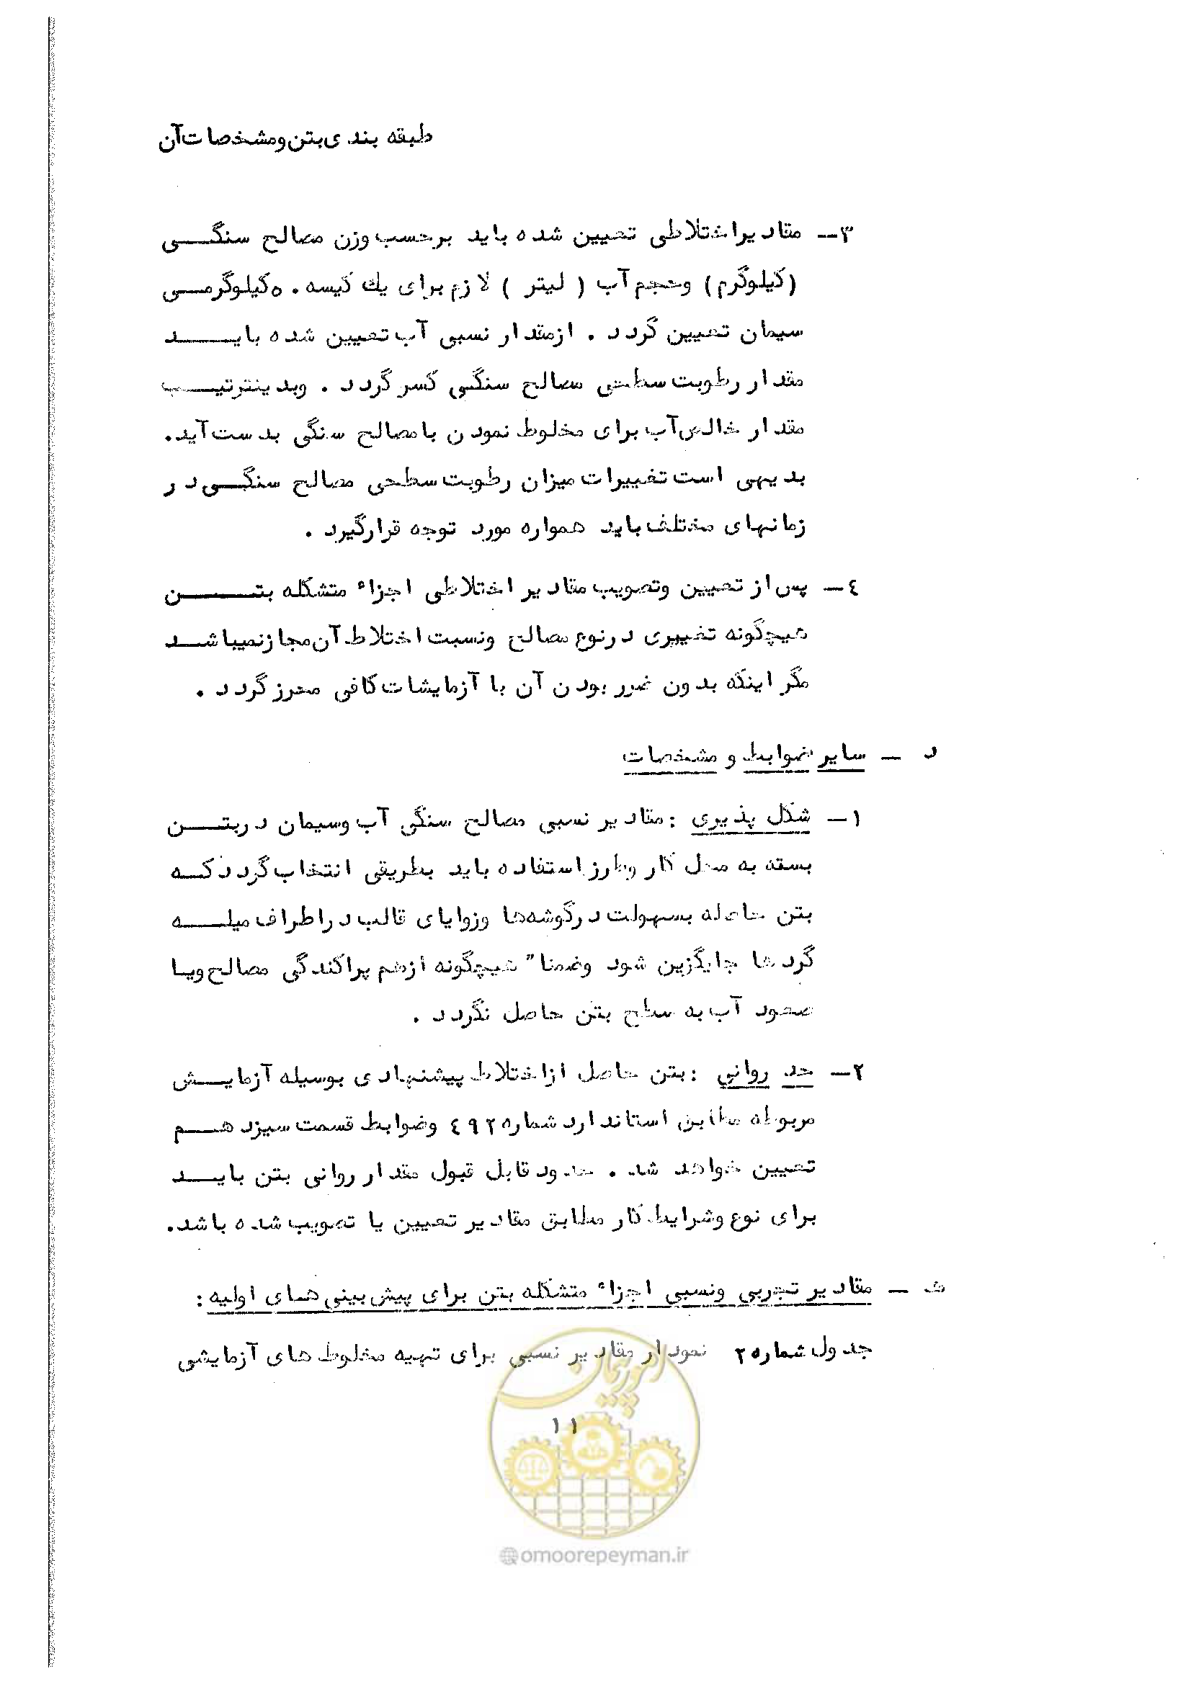 طبقه بندی بتن و مشخصات آن
۳ــ مقادیر اختلاطی تعیین شده باید برحسب وزن مصالح سنگی
(کیلوگرم) و حجم آب ( لیتر ) لازم برای یک کیسه ۵۰ کیلوگرمی
سیمان تعیین گردد . از مقدار نسبی آب تعیین شده باید
مقدار رطوبت سطحی مصالح سنگی کسر گردد . و بدینترتیب
مقدار خالص آب برای مخلوط نمودن با مصالح سنگی بدست آید.
بدیهی است تغییرات میزان رطوبت سطحی مصالح سنگی در
زمانهای مختلف باید همواره مورد توجه قرار گیرد .
٤ــ پس از تعیین و تصویب مقادیر اختلاطی اجزاء متشکله بتن
هیچگونه تغییری در نوع مصالح و نسبت اختلاط آن مجاز نمیباشد
مگر اینکه بدون ضرر بودن آن با آزمایشات کافی محرز گردد .
د ــ سایر ضوابط و مشخصات
۱ــ شکل پذیری : مقادیر نسبی مصالح سنگی آب و سیمان در بتن
بسته به محل کار و طرز استفاده باید بطریقی انتخاب گردد که
بتن حاصله بسهولت در گوشه‌ها و زوایای قالب در اطراف میله
گردها جایگزین شود و ضمنا" هیچگونه ازهم پراکندگی مصالح و یا
صعود آب به سطح بتن حاصل نگردد .
۲ــ حد روانی : بتن حاصل از اختلاط پیشنهادی بوسیله آزمایش
مربوطه مطابق استاندارد شماره ٤۹۲ و ضوابط قسمت سیزدهم
تعیین خواهد شد . حدود قابل قبول مقدار روانی بتن باید
برای نوع و شرایط کار مطابق مقادیر تعیین یا تصویب شده باشد.
هـ ــ مقادیر تجربی و نسبی اجزاء متشکله بتن برای پیش بینی های اولیه :
جدول شماره ۲ نمودار مقادیر نسبی برای تهیه مخلوط های آزمایشی
امور پیمان
۱۱
@omoorepeyman.ir